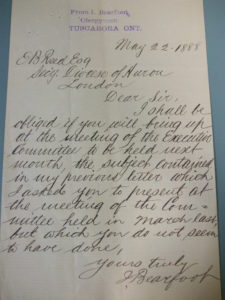 From I. Bearfoot,
Clergyman
TUSCARORA ONT.
May 22 1888
E B Reed Esq
Secy. Diocese of Huron
London
Dear Sir,
I shall be
obliged if you will bring up
at the meeting of the Executive
Committee to be held next
month, the subject contained
in my previous letter which
I asked you to present at
the meeting of the Com-
mittee held in March last
but which you do not seem
to have done,
Yours truly
I Bearfoot